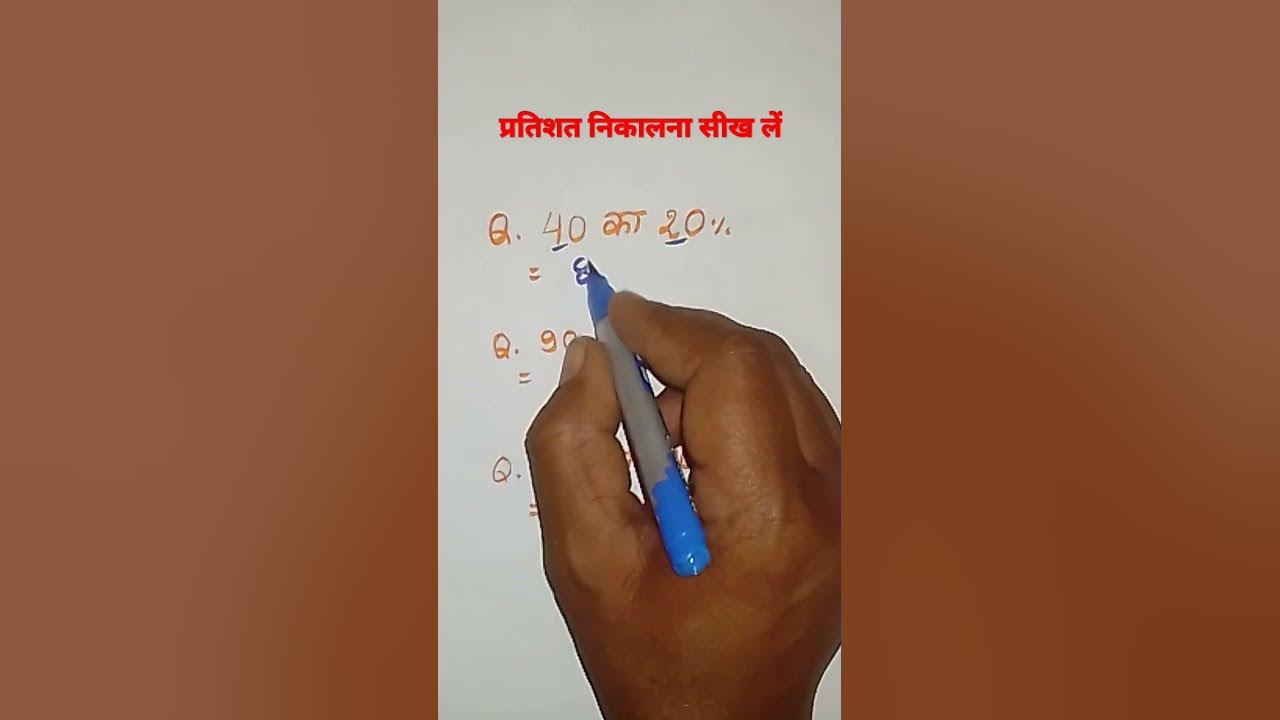 प्रतिशत निकालना सीख लें
Q. 40 का 20%
= 8
Q. 90
=
Q.
=